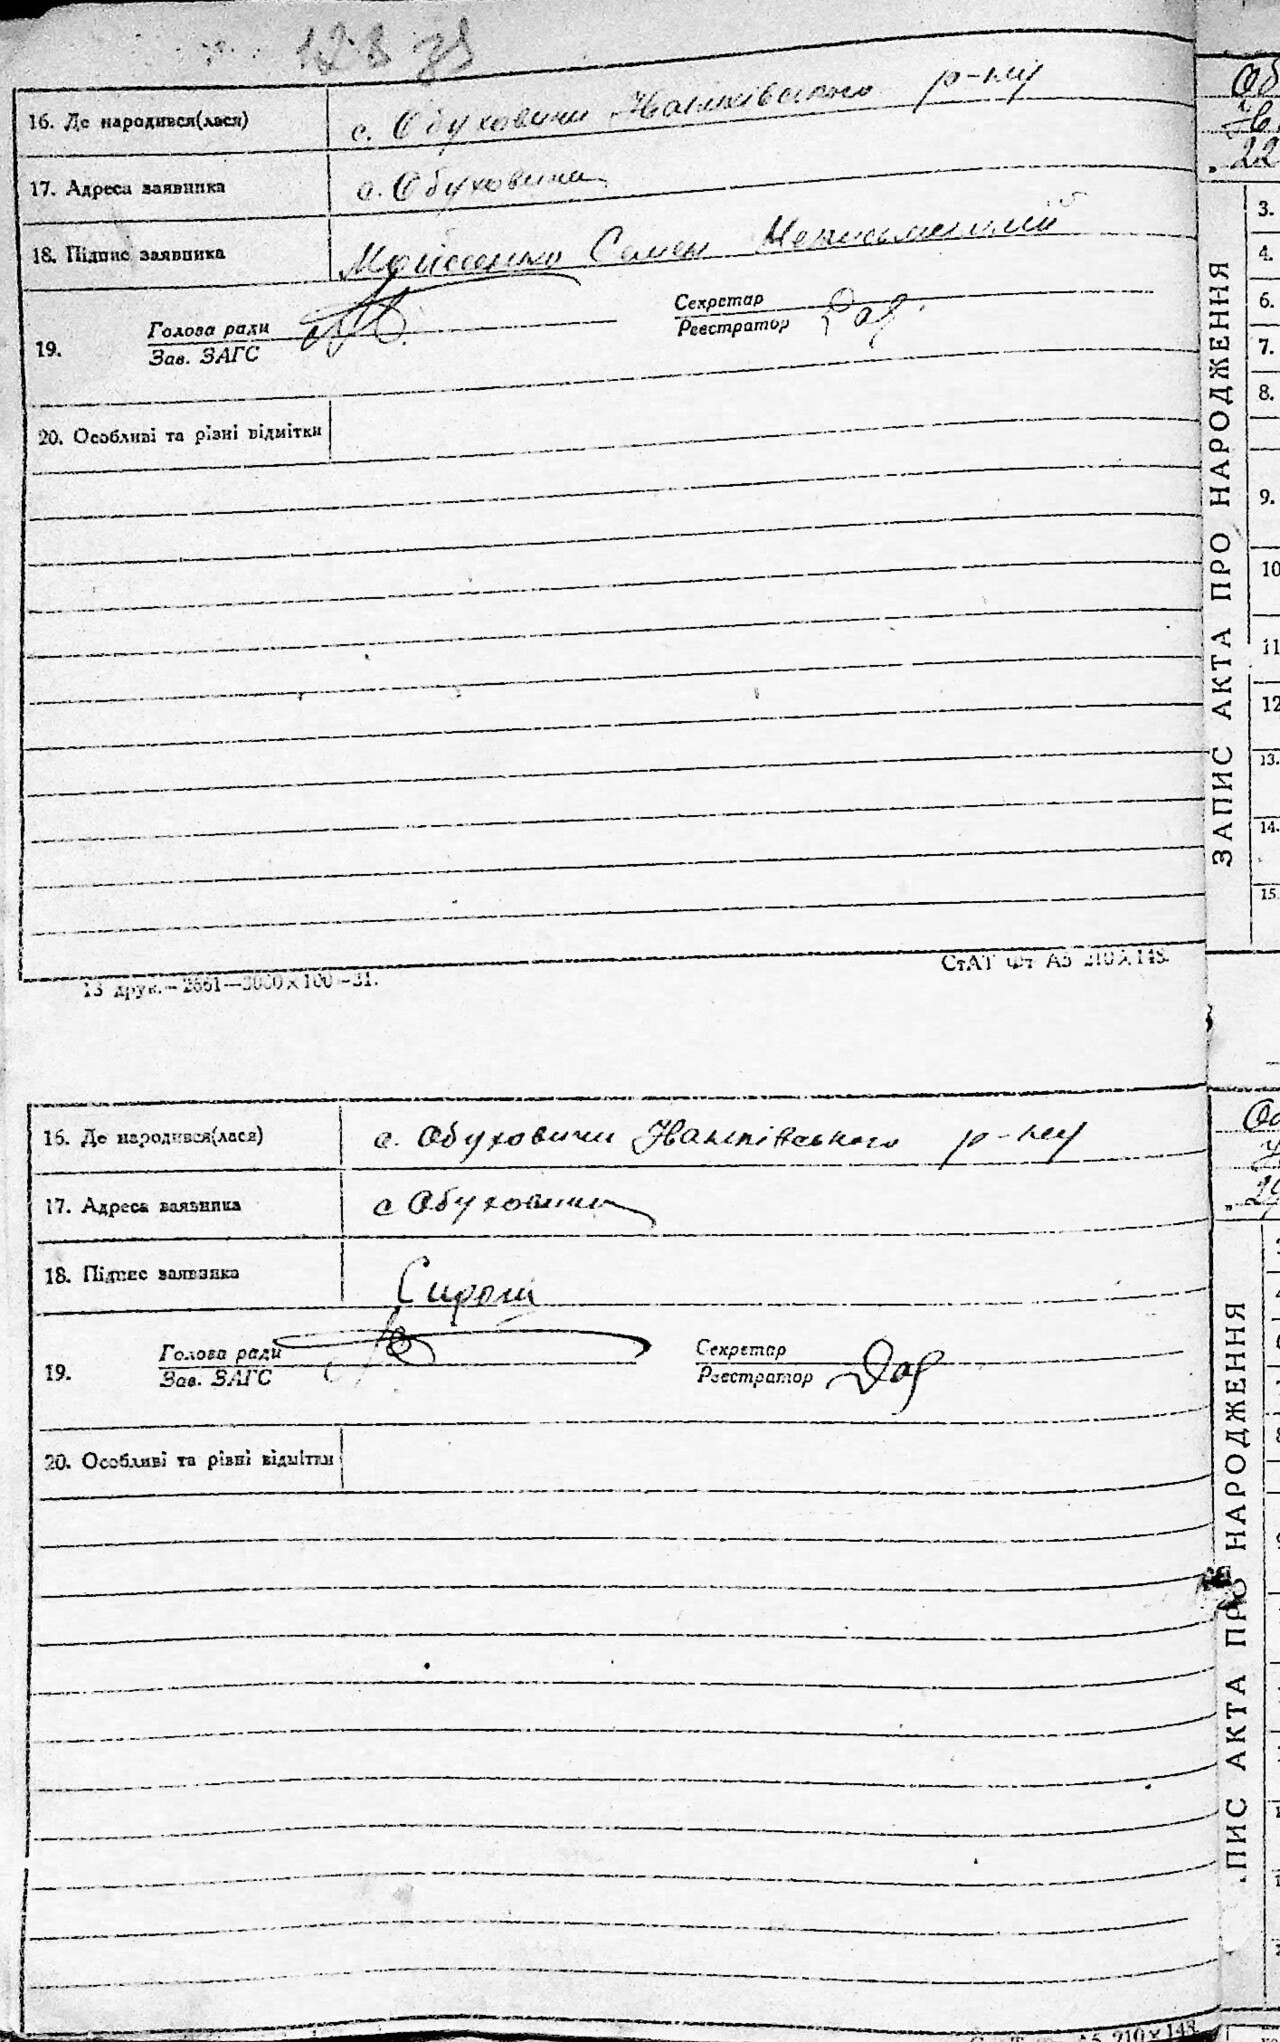 128 зв
16. Де народився(лася) с. Обуховичи Іванківського р-ну
17. Адреса заявника с. Обуховичи
18. Підпис заявника Мойсеенко Семен Неписьменний
19. Голова ради
Зав. ЗАГС
Секретар
Реєстратор
20. Особливі та різні відмітки
13 друк.—2661—3000×100—31.
СтАТ Фт А5 210×148.
16. Де народився(лася) с. Обуховичи Іванківського р-ну
17. Адреса заявника с Обуховичи
18. Підпис заявника
19. Голова ради
Зав. ЗАГС
Секретар
Реєстратор
20. Особливі та різні відмітки
Об
22
3.
4.
6.
7.
8.
9.
10
11
12
13.
14.
15.
ЗАПИС АКТА ПРО НАРОДЖЕННЯ
29
ПИС АКТА ПРО НАРОДЖЕННЯ
А5 210×148